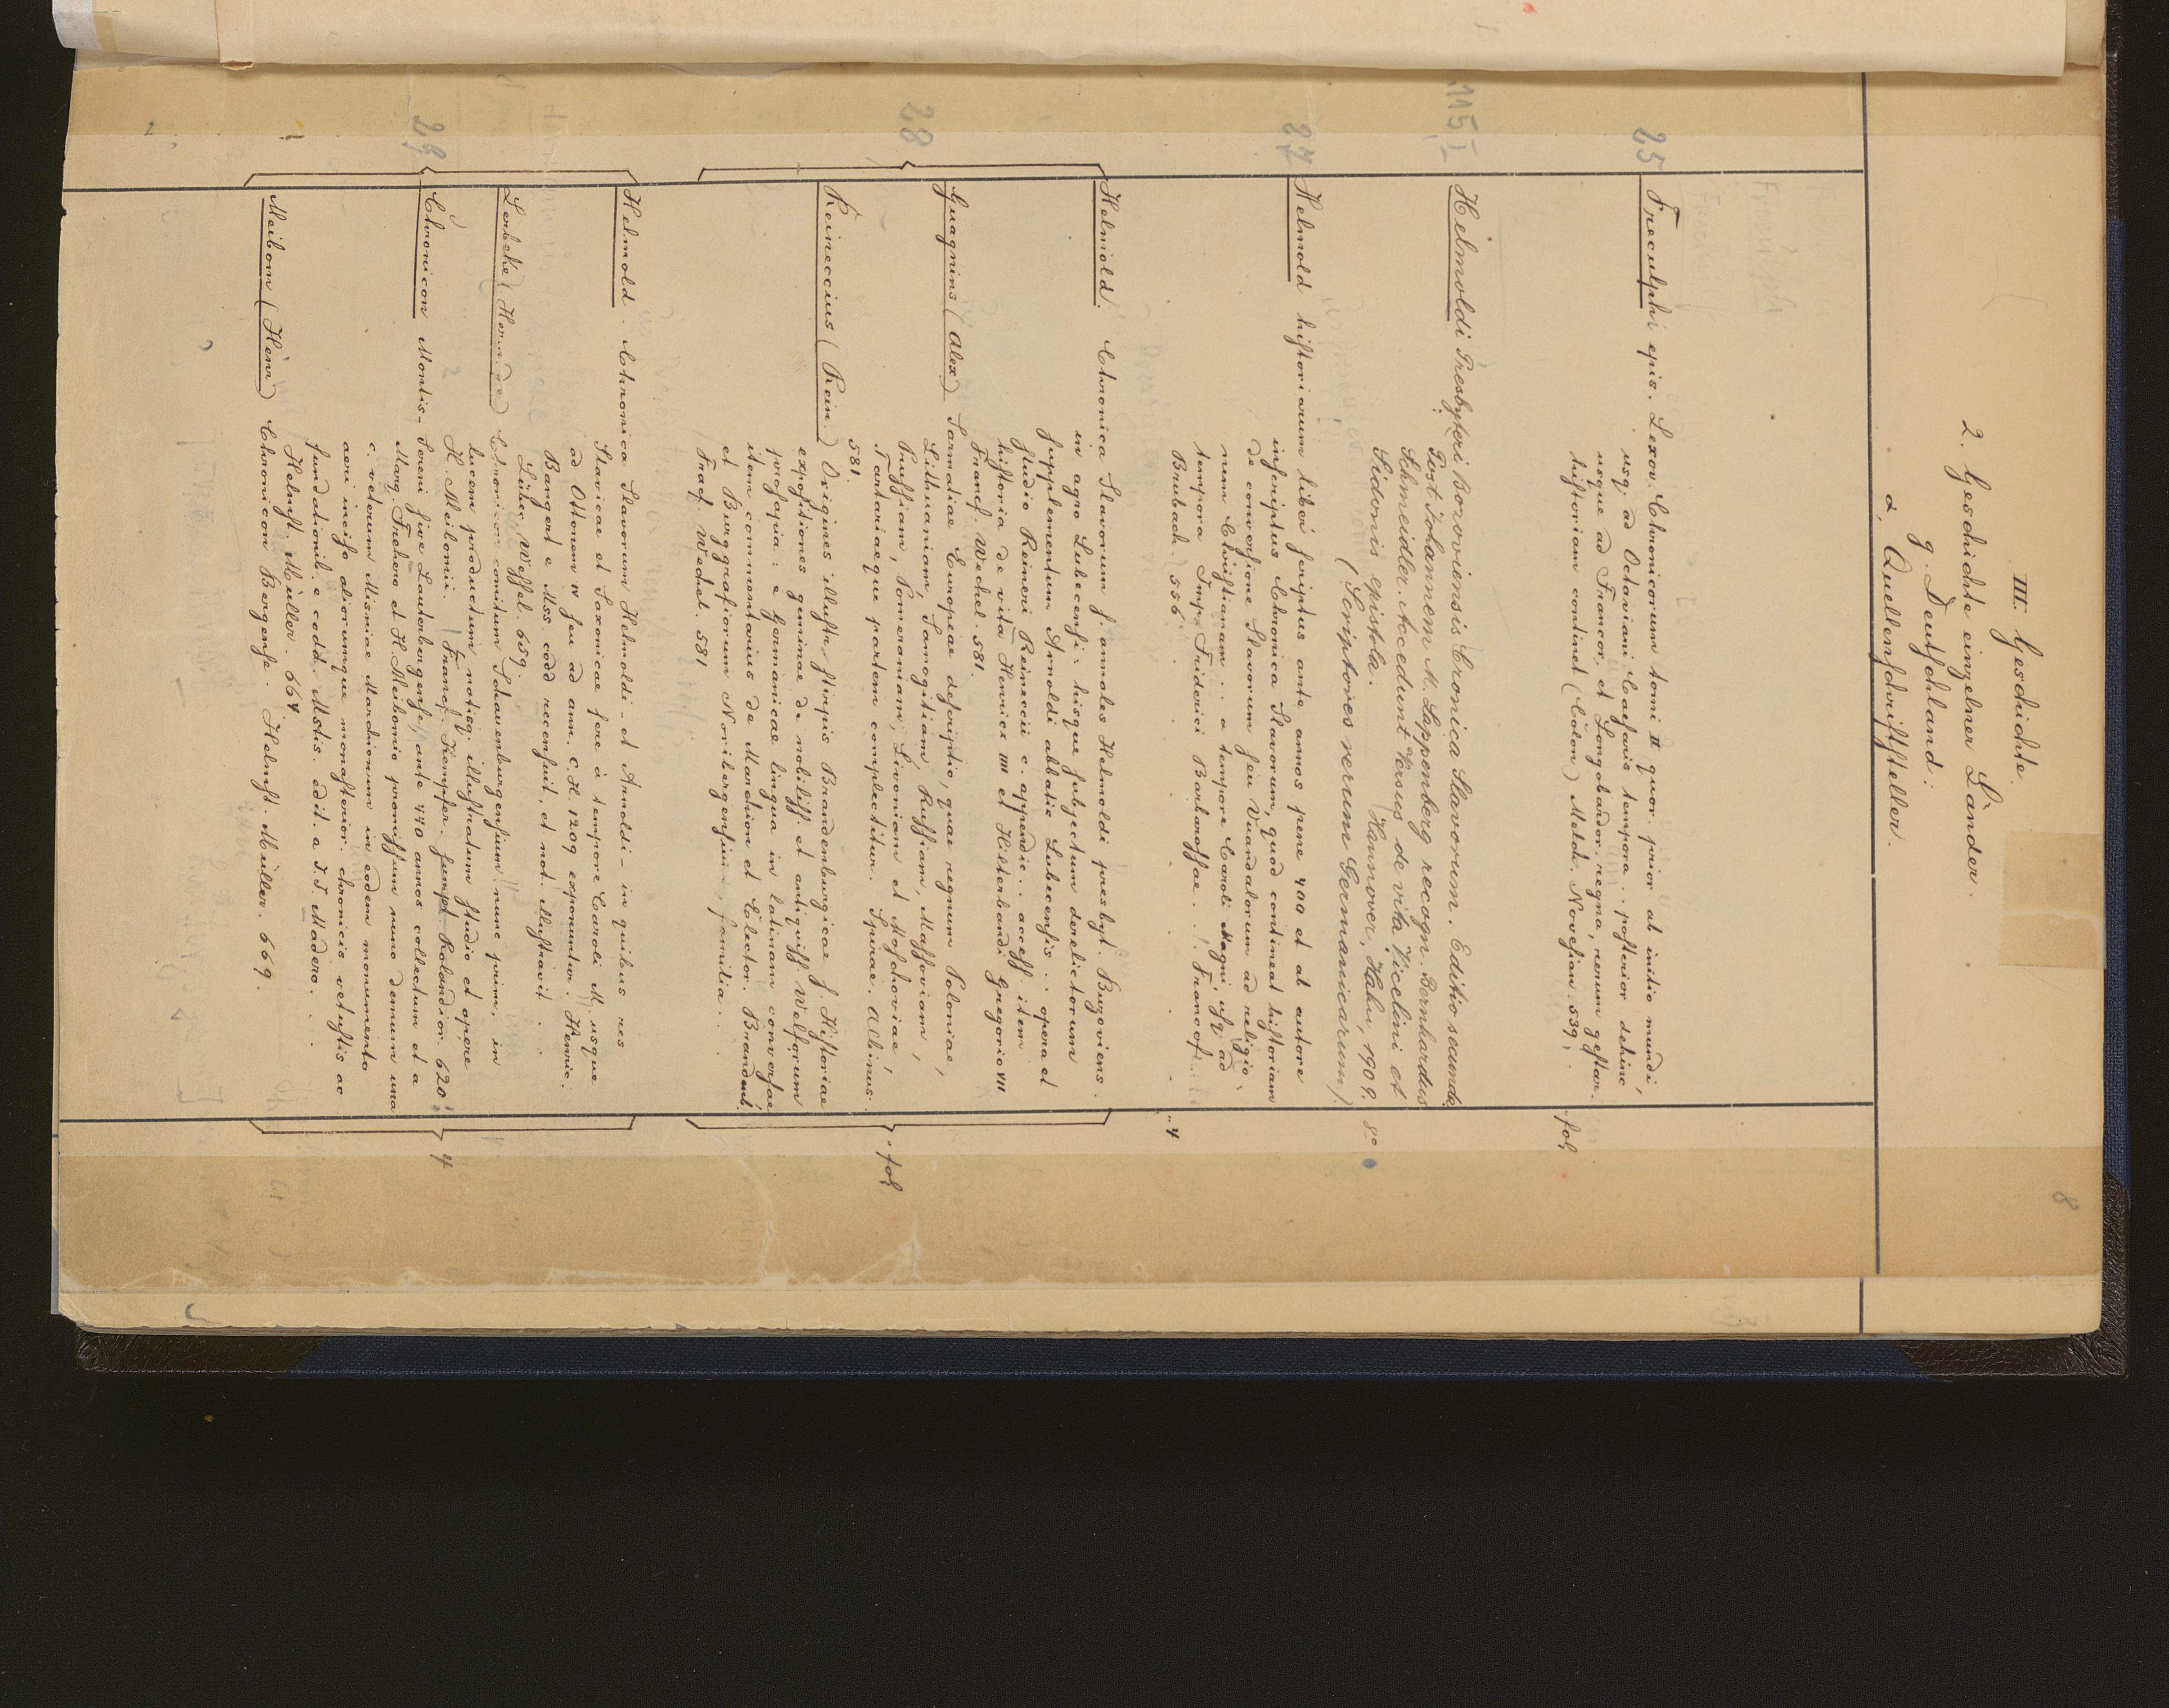 8
III. Geschichte.
2. Geschichte einzelner Länder.
g. Deutschland.
α, Quellenschriftsteller.
25 Freculphi epis. Lexov. Chronicorum tomi II quor. prior ab initio mundi,
usq. ad Octaviani Caesaris tempora.. posterior dehinc
usque ad Francor. et Longobardor. regna, rerum gestar.
historiam continet (Colon) Melch. Novesian. 539. fol
115 I Helmoldi Presbyteri Bozoviensis Cronica Slavorum. Editio secunda.
Post Johannem M. Lappenberg recogn. Bernhardus
Schmeidler. Accedunt Versus de vita Vicelini et
Sidonis epistola. Hannover, Hahn, 1909. 8°
(Scriptores rerum Germanicarum)
27 Helmold historiarum liber scriptus ante annos pene 400 et ab autore
inscriptus Chronica Slavorum, quod contineat historiam
de conversione Slavorum seu Vuandalorum ad religio
nem Christianam .. a tempore Caroli Magni usq. ad
tempora Imp. Friderici Barbarossae. Francof.
Brubach. 556 . . . . . 4
28 Helmold. Chronica Slavorum s. annales Helmoldi presbyt. Buzoviens.
in agro Lubecensi, hisque subjectum derelictorum
supplementum Arnoldi abbatis Lubecensis .. opera et
studio Reineri Reineccii c. appendic.. access. item
historia de vita Henrici IIII et Hiltebrandi Gregorio VII
Francf. Wechel. 581.
Guagninus (Alex) Sarmatiae Europeae descriptio, quae regnum Poloniae,
Lithuaniam, Samogitiam, Russiam, Massoviam,
Prussiam, Pomeraniam, Livoniam et Moschoviae,
Tartariaeque partem complectitur. Spirae. Albinus.
581. fol
Reineccius (Rein.) Origines illustr. stirpis Brandenburgicae s. Historiae
expositiones geminae de nobiliss. et antiquiss. Welforum
prosapia: e Germanicae lingua in latinam conversae
item commentarius de Marchion et Elector. Brandenb.
et Burggrafiorum Noribergensium familia . .
Fracf. Wechel. 581
29 Helmold. Chronica Slavorum Helmoldi - et Arnoldi - in quibus res
Slavicae et Saxonicae fere à tempore Caroli M. usque
ad Ottonem IV seu ad ann. C.H. 1209 exponuntur. Henric.
Bangert e Mss. codd recensuit, et not. illustravit . .
Lübec. Wessel. 659.
Lerbeke (Herm. de) Chronicon comitum Schauenburgensium nunc prim. in
lucem productum notisq. illustratum studio et opere
H. Meibomii. Francf. Kempfer. sumpt Rolandior. 620.
Chronicon Montis-Sereni sive Lauterbergense, ante 440 annos collectum et a
Marq. Frehero et H. Meibomio promissum nunc demum una
c. veterum Misniae Marchionum in eodem monumento
aeri inciso aliorumque monasterior. chronicis vetustis ac
fundationib. e codd. Mstis. edit. a J.J. Madero. . .
Helmst. Müller. 664. 4
Meibom (Heinr) Chronicon Bergense. Helmst. Müller. 669.